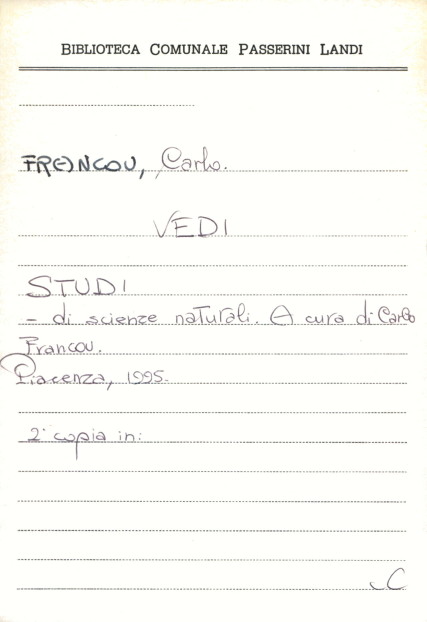 BIBLIOTECA COMUNALE PASSERINI LANDI
FRANCOU, Carlo.
VEDI
STUDI
- di scienze naturali. A cura di Carlo
Francou.
Piacenza, 1995.
2ª copia in:
C